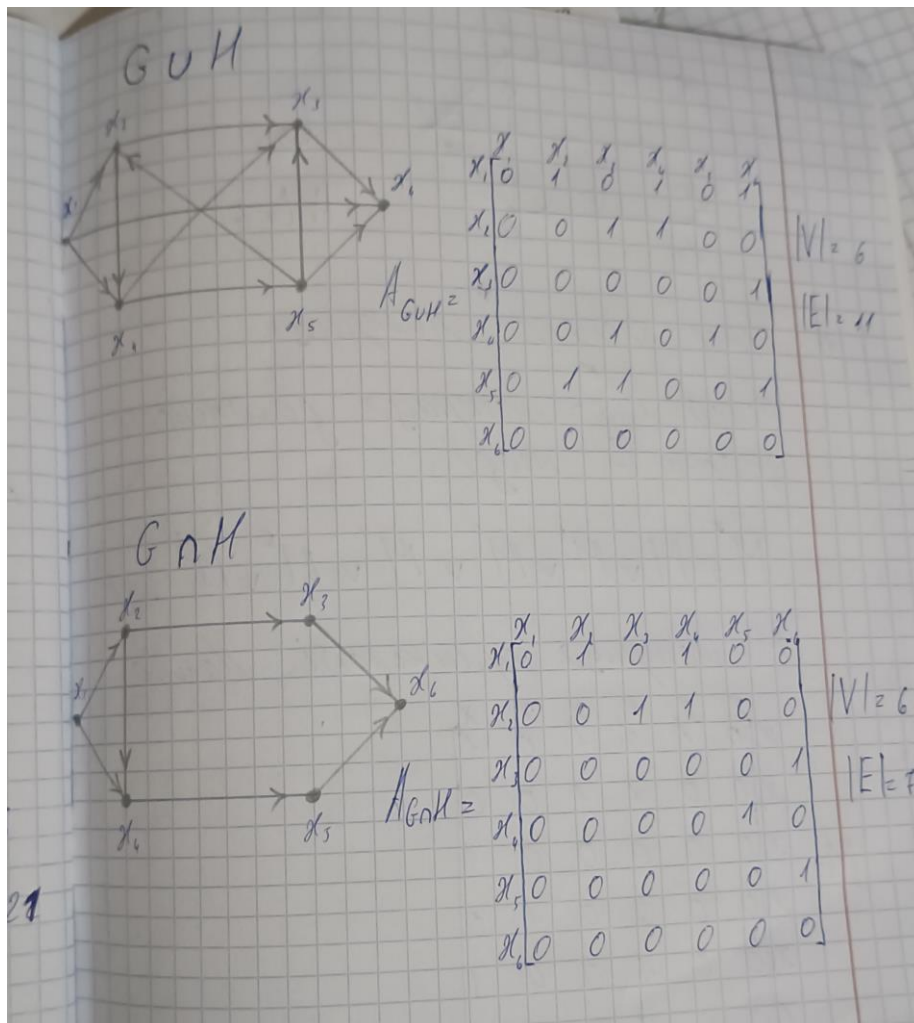 G∪H
x₂ x₃
x₁ x₆
x₄ x₅
A_{G∪H} =
x₁ x₂ x₃ x₄ x₅ x₆
x₁ 0 1 0 1 0 1
x₂ 0 0 1 1 0 0
x₃ 0 0 0 0 0 1
x₄ 0 0 1 0 1 0
x₅ 0 1 1 0 0 1
x₆ 0 0 0 0 0 0
|V| = 6
|E| = 11
G∩H
x₂ x₃
x₁ x₆
x₄ x₅
A_{G∩H} =
x₁ x₂ x₃ x₄ x₅ x₆
x₁ 0 1 0 1 0 0
x₂ 0 0 1 1 0 0
x₃ 0 0 0 0 0 1
x₄ 0 0 0 0 1 0
x₅ 0 0 0 0 0 1
x₆ 0 0 0 0 0 0
|V| = 6
|E| = 7
21